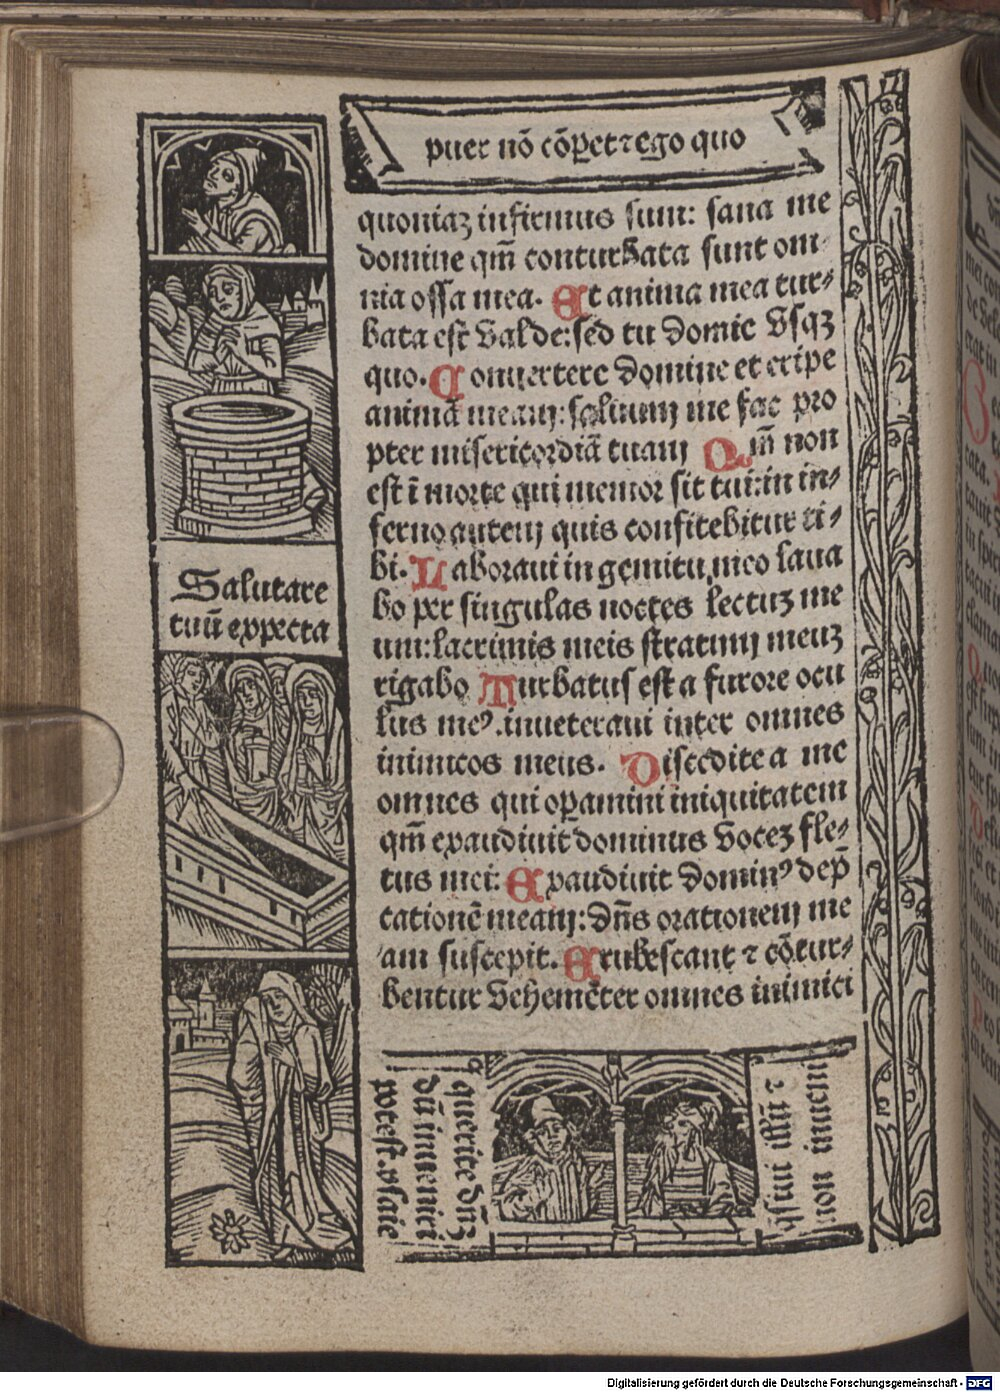 puer nō cōpet ⁊ ego quo
quoniaꝫ infirmus sum: sana me
domine qm̄ conturbata sunt om-
nia ossa mea. Et anima mea tur-
bata est valde: sed tu domie vsqꝫ
quo. Conuertere domine et eripe
animā meam: saluum me fac pro
pter misericordiā tuam Qm̄ non
est ī morte qui memor sit tui: in in-
ferno autem quis confitebitur ti-
bi. Laboraui in gemitu meo laua
bo per singulas noctes lectuꝫ me
um: lacrimis meis stratum meuꝫ
rigabo Turbatus est a furore ocu
lus meꝰ. inueteraui inter omnes
inimicos meus. Discedite a me
omnes qui oꝑamini iniquitatem
qm̄ exaudiuit dominus voceꝫ fle-
tus mei: Exaudiuit dominꝰ dep̄
cationē meam: dn̄s orationem me
am suscepit. Erubescant ⁊ cōtur-
bentur vehemēter omnes inimici
Salutare
tuū expecta
querite dn̄ꝫ
dū inueniri
potest. ysaie
q̄siui illū ⁊
non inueni
Digitalisierung gefördert durch die Deutsche Forschungsgemeinschaft - DFG